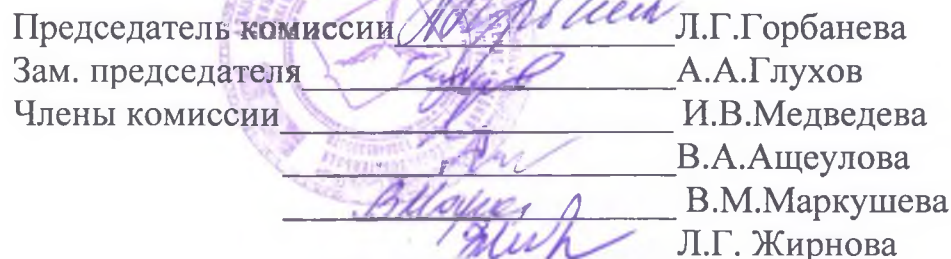 Председатель комиссии Л.Г.Горбанева
Зам. председателя А.А.Глухов
Члены комиссии И.В.Медведева
В.А.Ащеулова
В.М.Маркушева
Л.Г. Жирнова